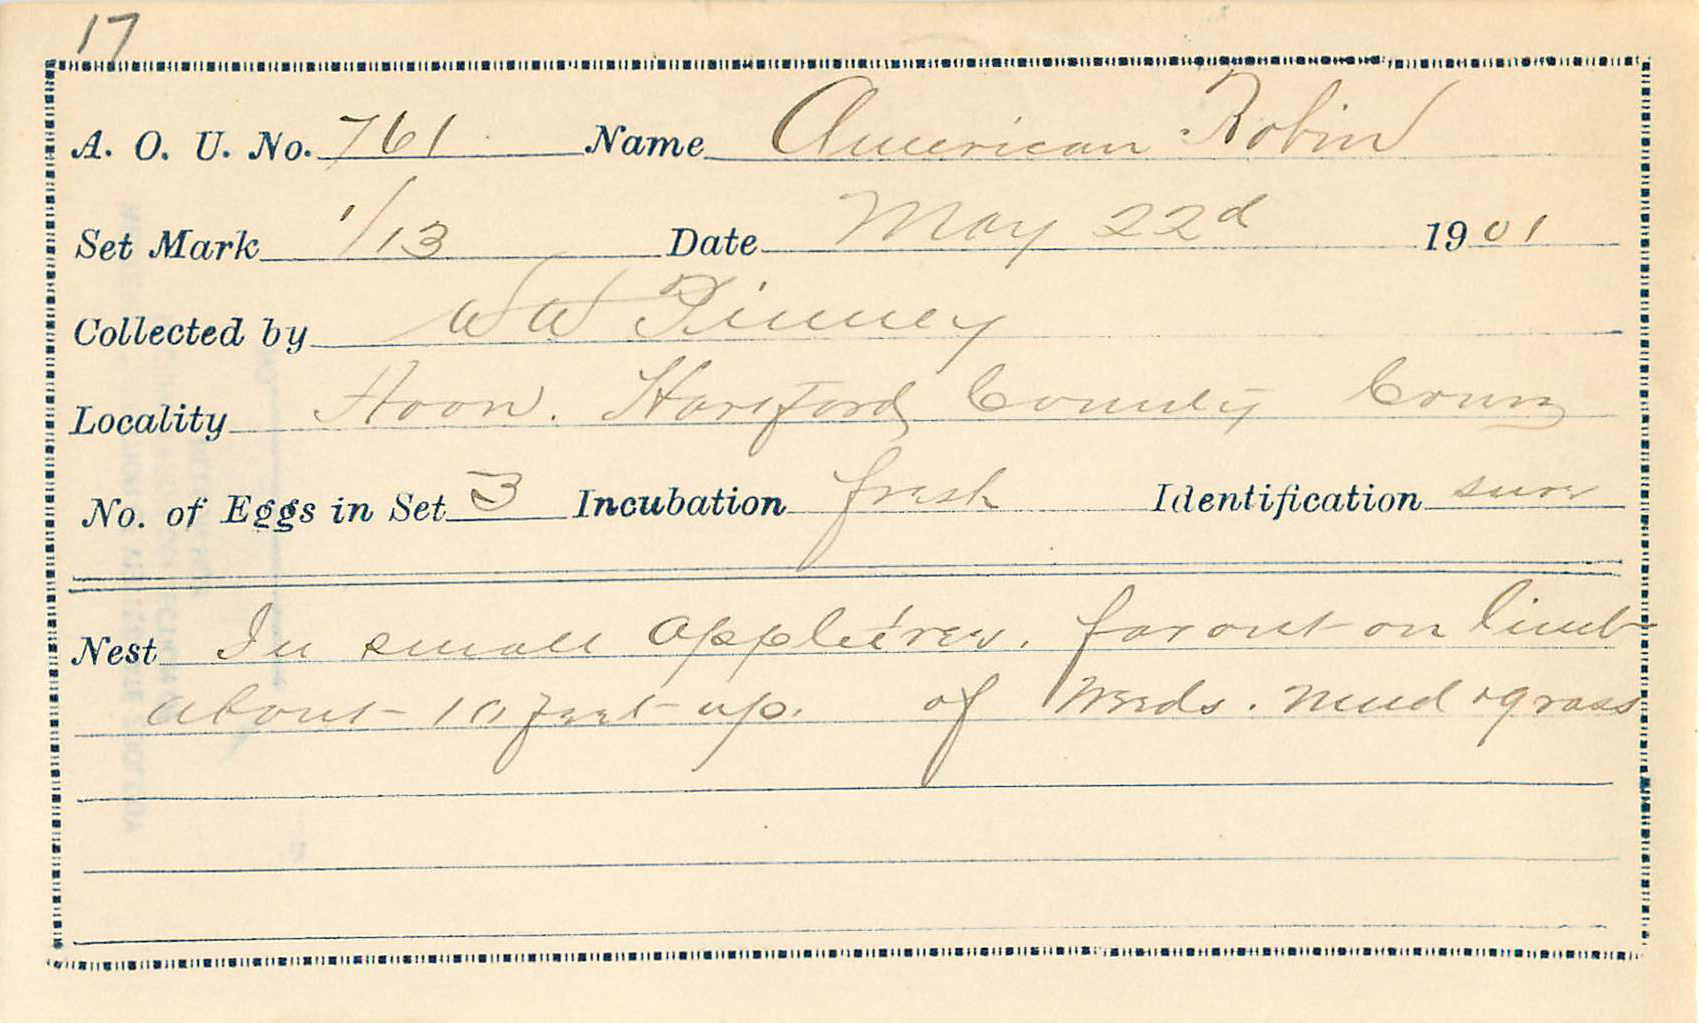 17
A. O. U. No. 761 Name American Robin
Set Mark 1/13 Date May 22d 1901
Collected by WW Pinney
Locality Hartford County Conn
No. of Eggs in Set 3 Incubation fresh Identification sure
Nest In small appletree. far out on limb
about 10 feet up. of Weeds. mud & grass